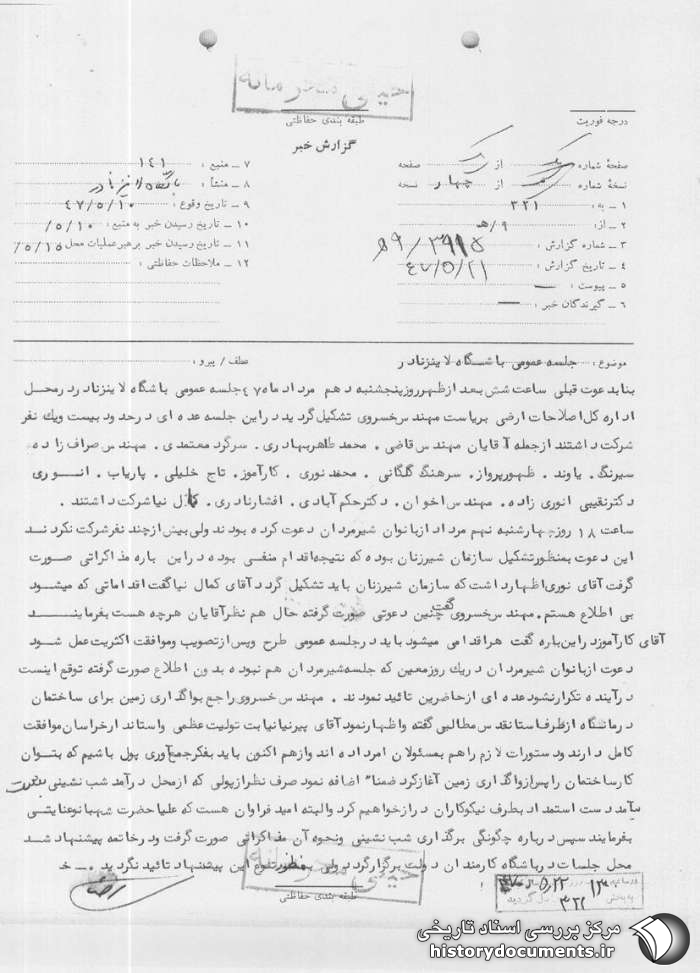 خیلی محرمانه
طبقه بندی حفاظتی
گزارش خبر
درجه فوریت
صفحهٔ شماره یک از یک صفحه
نسخهٔ شماره از چهار نسخه
۱ ــ به : ۳۲۱
۲ ــ از: ۹/ﻫ
۳ ــ شماره گزارش :
۴ ــ تاریخ گزارش : ۴۷/۵/۲۱
۵ ــ پیوست : ــ
۶ ــ گیرندگان خبر : ــ
۷ ــ منبع : ۱۴۱
۸ ــ منشأ : باشگاه لاینز نادر
۹ ــ تاریخ وقوع : ۴۷/۵/۱۰
۱۰ ــ تاریخ رسیدن خبر به منبع : ۵/۱۰/
۱۱ ــ تاریخ رسیدن خبر برهبر عملیات محل ۵/۱۵/
۱۲ ــ ملاحظات حفاظتی :
موضوع : جلسه عمومی باشگاه لاینز نادر
عطف / پیرو :
بنابدعوت قبلی ساعت شش بعد از ظهر روز پنجشنبه دهم مرداد ماه ۴۷ جلسه عمومی باشگاه لاینز نادر در محل
اداره کل اصلاحات ارضی بریاست مهندس خسروی تشکیل گردید در این جلسه عده ای در حدود بیست ویک نفر
شرکت داشتند از جمله آقایان مهندس قاضی . محمد طاهر بهادری . سرگرد معتمدی . مهندس صراف زاده
سیرنگ . یاوند . ظهور پرواز . سرهنگ گلگانی . محمد نوری . کارآموز . تاج خلیلی . پاریاب . انوری
دکتر نقیبی انوری زاده . مهندس اخوان . دکتر حکم آبادی . افشار نادری . کمال نیا شرکت داشتند .
ساعت ۱۸ روز چهارشنبه نهم مرداد از بانوان شیر مردان دعوت کرده بودند ولی بیش از چند نفر شرکت نکردند
این دعوت بمنظور تشکیل سازمان شیر زنان بوده که نتیجه اقدام منفی بوده در این باره مذاکراتی صورت
گرفت آقای نوری اظهار داشت که سازمان شیر زنان باید تشکیل گردد آقای کمال نیا گفت اقداماتی که میشود
بی اطلاع هستم . مهندس خسروی گفت چنین دعوتی صورت گرفته حال هم نظر آقایان هرچه هست بفرمایند
آقای کارآموز در این باره گفت هر اقدامی میشود باید در جلسه عمومی طرح وپس از تصویب وموافقت اکثریت عمل شود
دعوت از بانوان شیر مردان در یک روز معین که جلسه شیر مردان هم نبوده بدون اطلاع صورت گرفته توقع اینست
در آینده تکرار نشود عده ای از حاضرین تائید نمودند . مهندس خسروی راجع بواگذاری زمین برای ساختمان
درمانگاه از طرف آستانقدس مطالبی گفته واظهار نمود آقای پیرنیا نیابت تولیت عظمی واستاندار خراسان موافقت
کامل دارند ودستورات لازم را هم بمسئولان امر داده اند واز هم اکنون باید بفکر جمع آوری پول باشیم که بتوان
کار ساختمان را پس از واگذاری زمین آغاز کرد ضمناً اضافه نمود صرف نظر از پولی که از محل درآمد شب نشینی بدست
میآمد دست استمداد بطرف نیکوکاران دراز خواهیم کرد والبته امید فراوان هست که علیا حضرت شهبانو عنایتی
بفرمایند سپس درباره چگونگی برگذاری شب نشینی ونحوه آن مذاکراتی صورت گرفت ودر خاتمه پیشنهاد شد
محل جلسات در باشگاه کارمندان دولت برگزار گردد ولی این پیشنهاد تائید نگردید . ــ خ
خیلی محرمانه
طبقه بندی حفاظتی
۳۲۱
مرکز بررسی اسناد تاریخی
historydocuments.ir